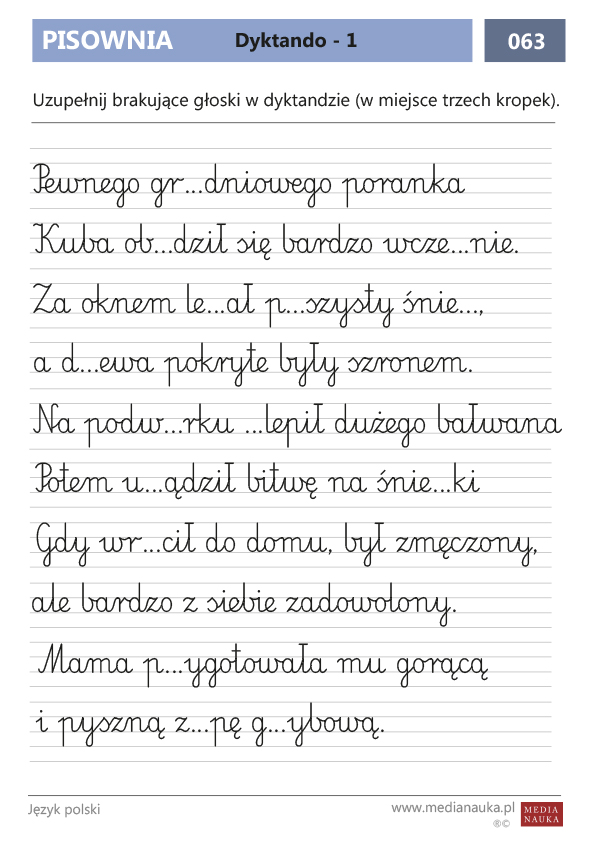 PISOWNIA Dyktando - 1 063
Uzupełnij brakujące głoski w dyktandzie (w miejsce trzech kropek).
Pewnego gr...dniowego poranka
Kuba ob...dził się bardzo wcze...nie.
Za oknem le...ał p...szysty śnie...,
a d...ewa pokryte były szronem.
Na podw...rku ...lepił dużego bałwana
Potem u...ądził bitwę na śnie...ki
Gdy wr...cił do domu, był zmęczony,
ale bardzo z siebie zadowolony.
Mama p...ygotowała mu gorącą
i pyszną z...pę g...ybową.
Język polski www.medianauka.pl MEDIA
®© NAUKA